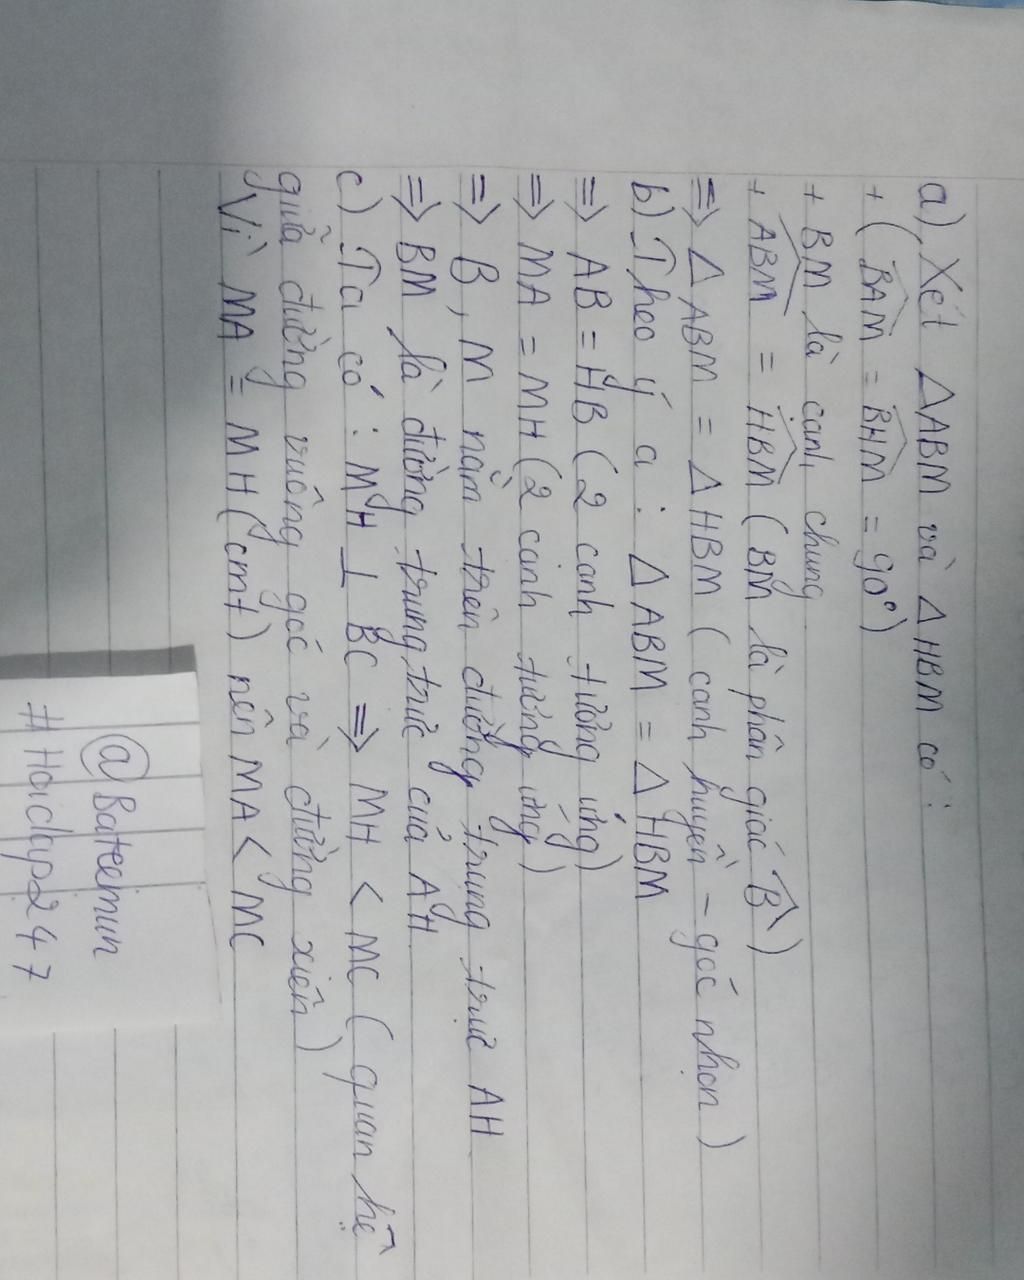 a) Xét ΔABM và ΔHBM có :
+ (BAM = BHM = 90°)
+ BM là cạnh chung
+ ABM = HBM (BM là phân giác B)
=> ΔABM = ΔHBM (cạnh huyền - góc nhọn)
b) Theo ý a : ΔABM = ΔHBM
=> AB = HB (2 cạnh tương ứng)
=> MA = MH (2 cạnh tương ứng)
=> B, M nằm trên đường trung trực AH
=> BM là đường trung trực của AH
c) Ta có : MH ⊥ BC => MH < MC (quan hệ
giữa đường vuông góc và đường xiên)
Vì MA = MH (cmt) nên MA < MC
@Bateemun
#Hoidap247